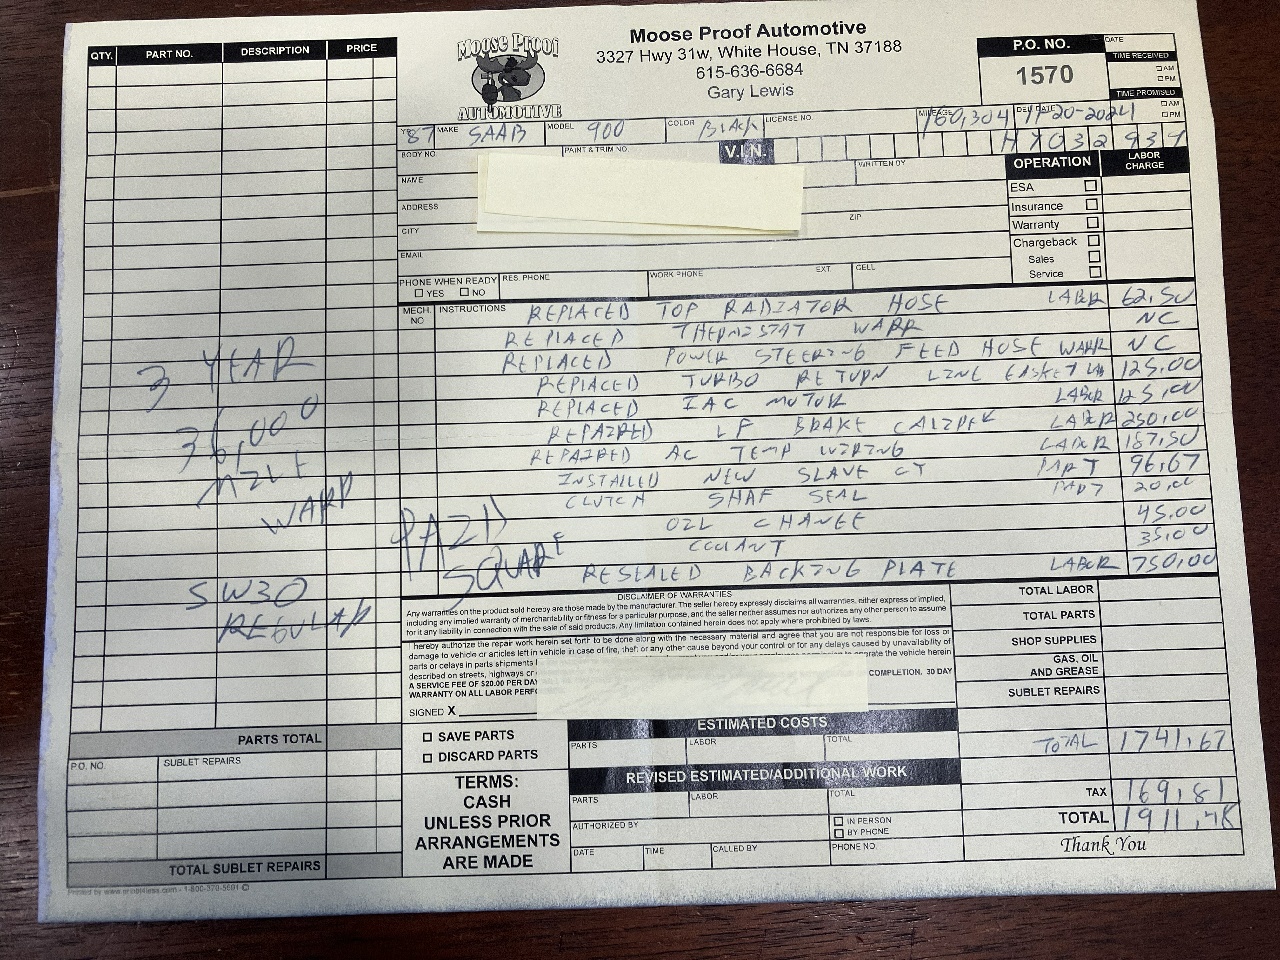 Moose Proof
AUTOMOTIVE
Moose Proof Automotive
3327 Hwy 31w, White House, TN 37188
615-636-6684
Gary Lewis
P.O. NO.
1570
DATE
TIME RECEIVED
AM
PM
TIME PROMISED
AM
PM
QTY. PART NO. DESCRIPTION PRICE
87 MAKE SAAB MODEL 900 COLOR Black LICENSE NO. MILEAGE 160,304 DEL DATE 11-20-2024
BODY NO. PAINT & TRIM NO. V.I.N. H7032937
NAME WRITTEN BY
ADDRESS ZIP
CITY
EMAIL
PHONE WHEN READY YES NO RES. PHONE WORK PHONE EXT. CELL
OPERATION LABOR CHARGE
ESA
Insurance
Warranty
Chargeback
Sales
Service
MECH. NO INSTRUCTIONS
REPLACED TOP RADIATOR HOSE LABOR 62,50
REPLACED THERMISTAT WARR NC
REPLACED POWER STEERING FEED HOSE WARR NC
REPLACED TURBO RETURN LINE GASKET 125,00
REPLACED IAC MOTOR LABOR 125,00
REPAIRED LF BRAKE CALIPER LABOR 250,00
REPAIRED AC TEMP WIRING LABOR 187,50
INSTALLED NEW SLAVE CY PART 96,67
CLUTCH SHAF SEAL PART 20,00
OIL CHANGE 45,00
COOLANT 35,00
RESEALED BACKING PLATE LABOR 750,00
3 YEAR
36,000
MILE
WARR
5W30
REGULAR
PAID
SQUARE
DISCLAIMER OF WARRANTIES
Any warranties on the product sold hereby are those made by the manufacturer. The seller hereby expressly disclaims all warranties, either express or implied,
including any implied warranty of merchantability or fitness for a particular purpose, and the seller neither assumes nor authorizes any other person to assume
for it any liability in connection with the sale of said products. Any limitation contained herein does not apply where prohibited by laws.
I hereby authorize the repair work herein set forth to be done along with the necessary material and agree that you are not responsible for loss or
damage to vehicle or articles left in vehicle in case of fire, theft or any other cause beyond your control or for any delays caused by unavailability of
parts or delays in parts shipments operate the vehicle herein
described on streets, highways or
A SERVICE FEE OF $20.00 PER DAY COMPLETION. 30 DAY
WARRANTY ON ALL LABOR
SIGNED X
TOTAL LABOR
TOTAL PARTS
SHOP SUPPLIES
GAS, OIL
AND GREASE
SUBLET REPAIRS
TOTAL 1741,67
TAX 169,81
TOTAL
Thank You
SAVE PARTS
DISCARD PARTS
TERMS:
CASH
UNLESS PRIOR
ARRANGEMENTS
ARE MADE
ESTIMATED COSTS
PARTS LABOR TOTAL
REVISED ESTIMATED/ADDITIONAL WORK
PARTS LABOR TOTAL
AUTHORIZED BY IN PERSON
BY PHONE
DATE TIME CALLED BY PHONE NO.
PARTS TOTAL
P.O. NO. SUBLET REPAIRS
TOTAL SUBLET REPAIRS